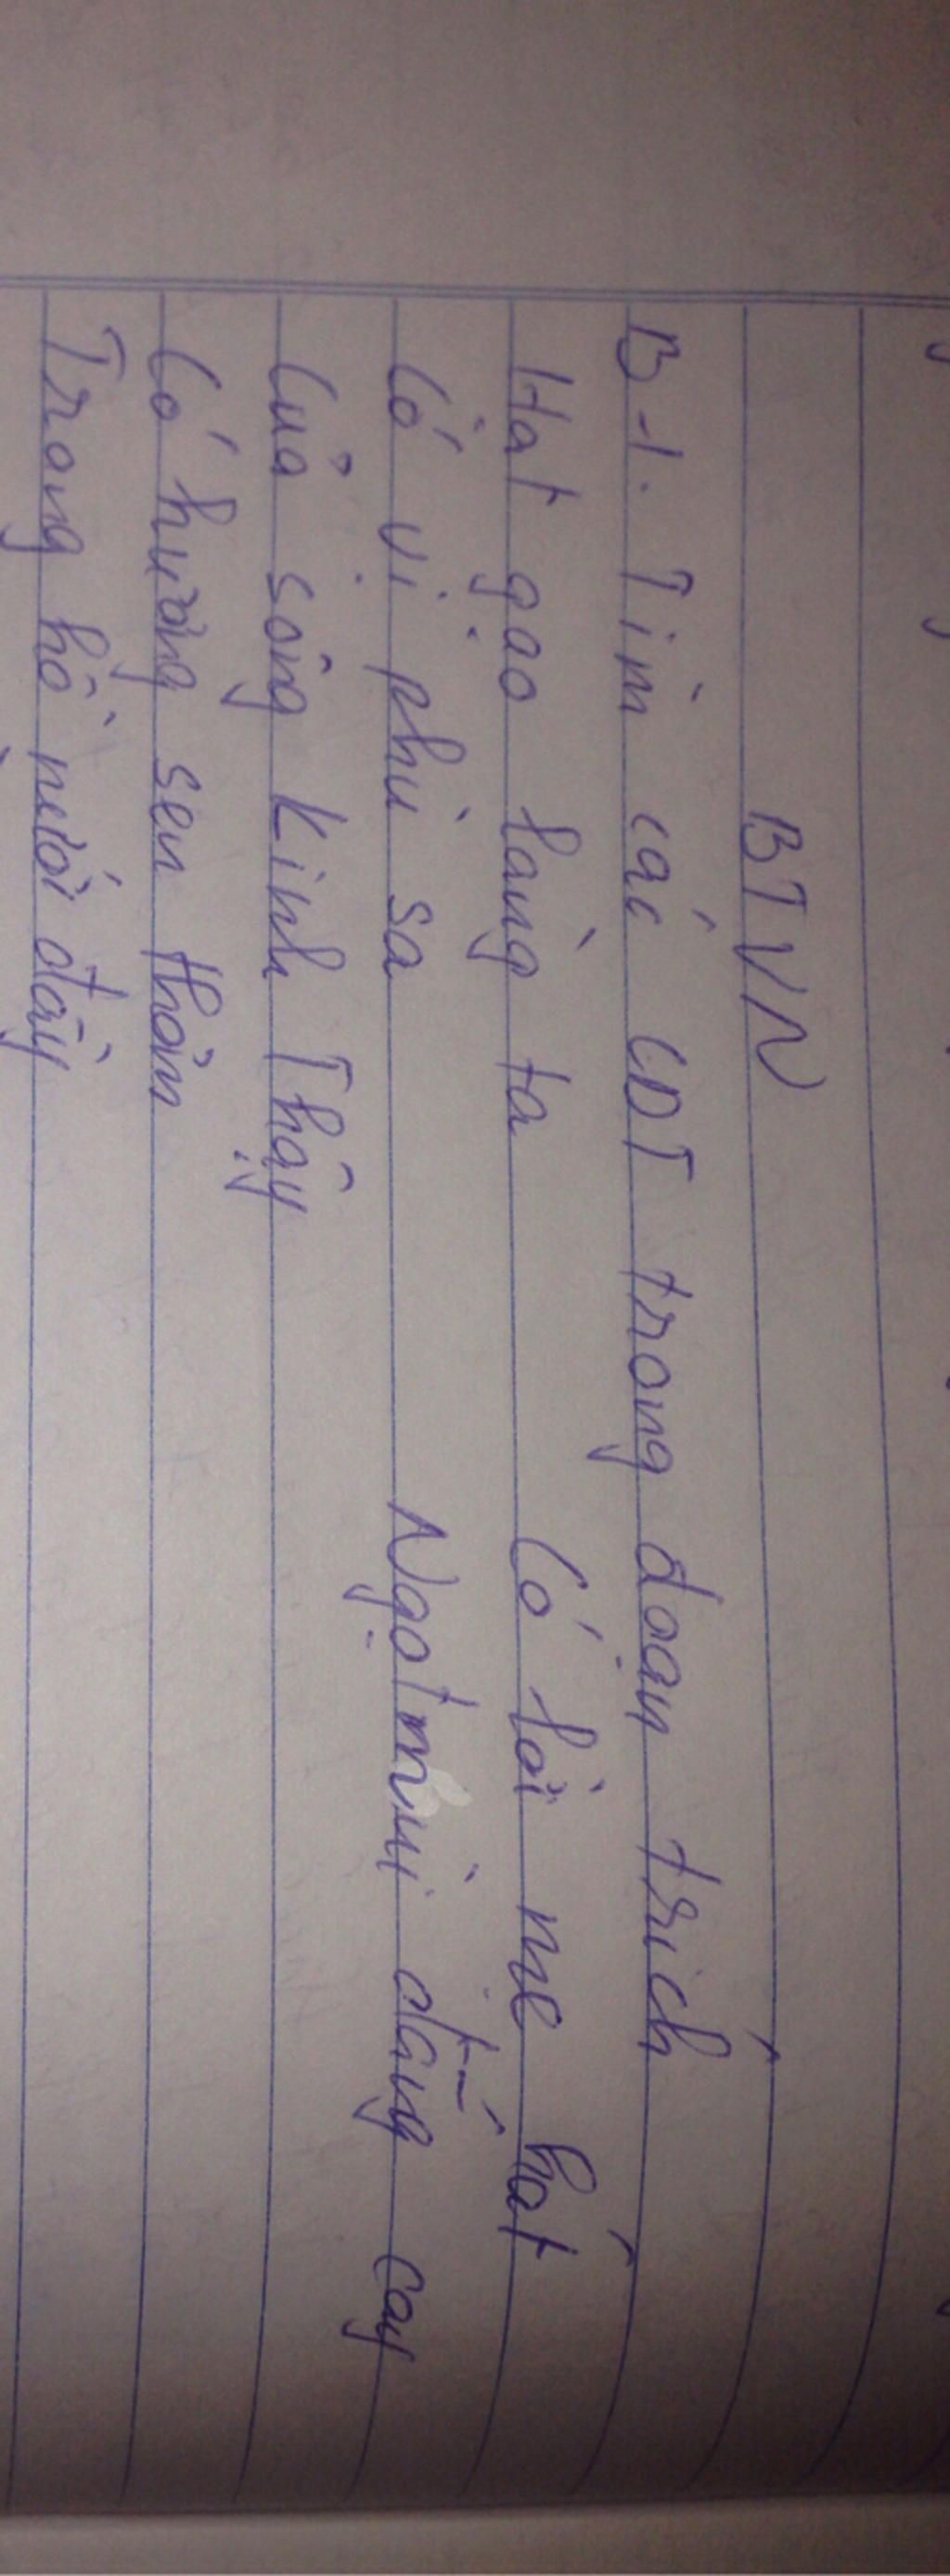 BTVN
B-1. Tìm các CDT trong đoạn trích
Hạt gạo làng ta
Có vị phù sa
Của sông Kinh Thầy
Có hương sen thơm
Trong hồ nước đầy
Có lời mẹ hát
Ngọt mùi đắng cay